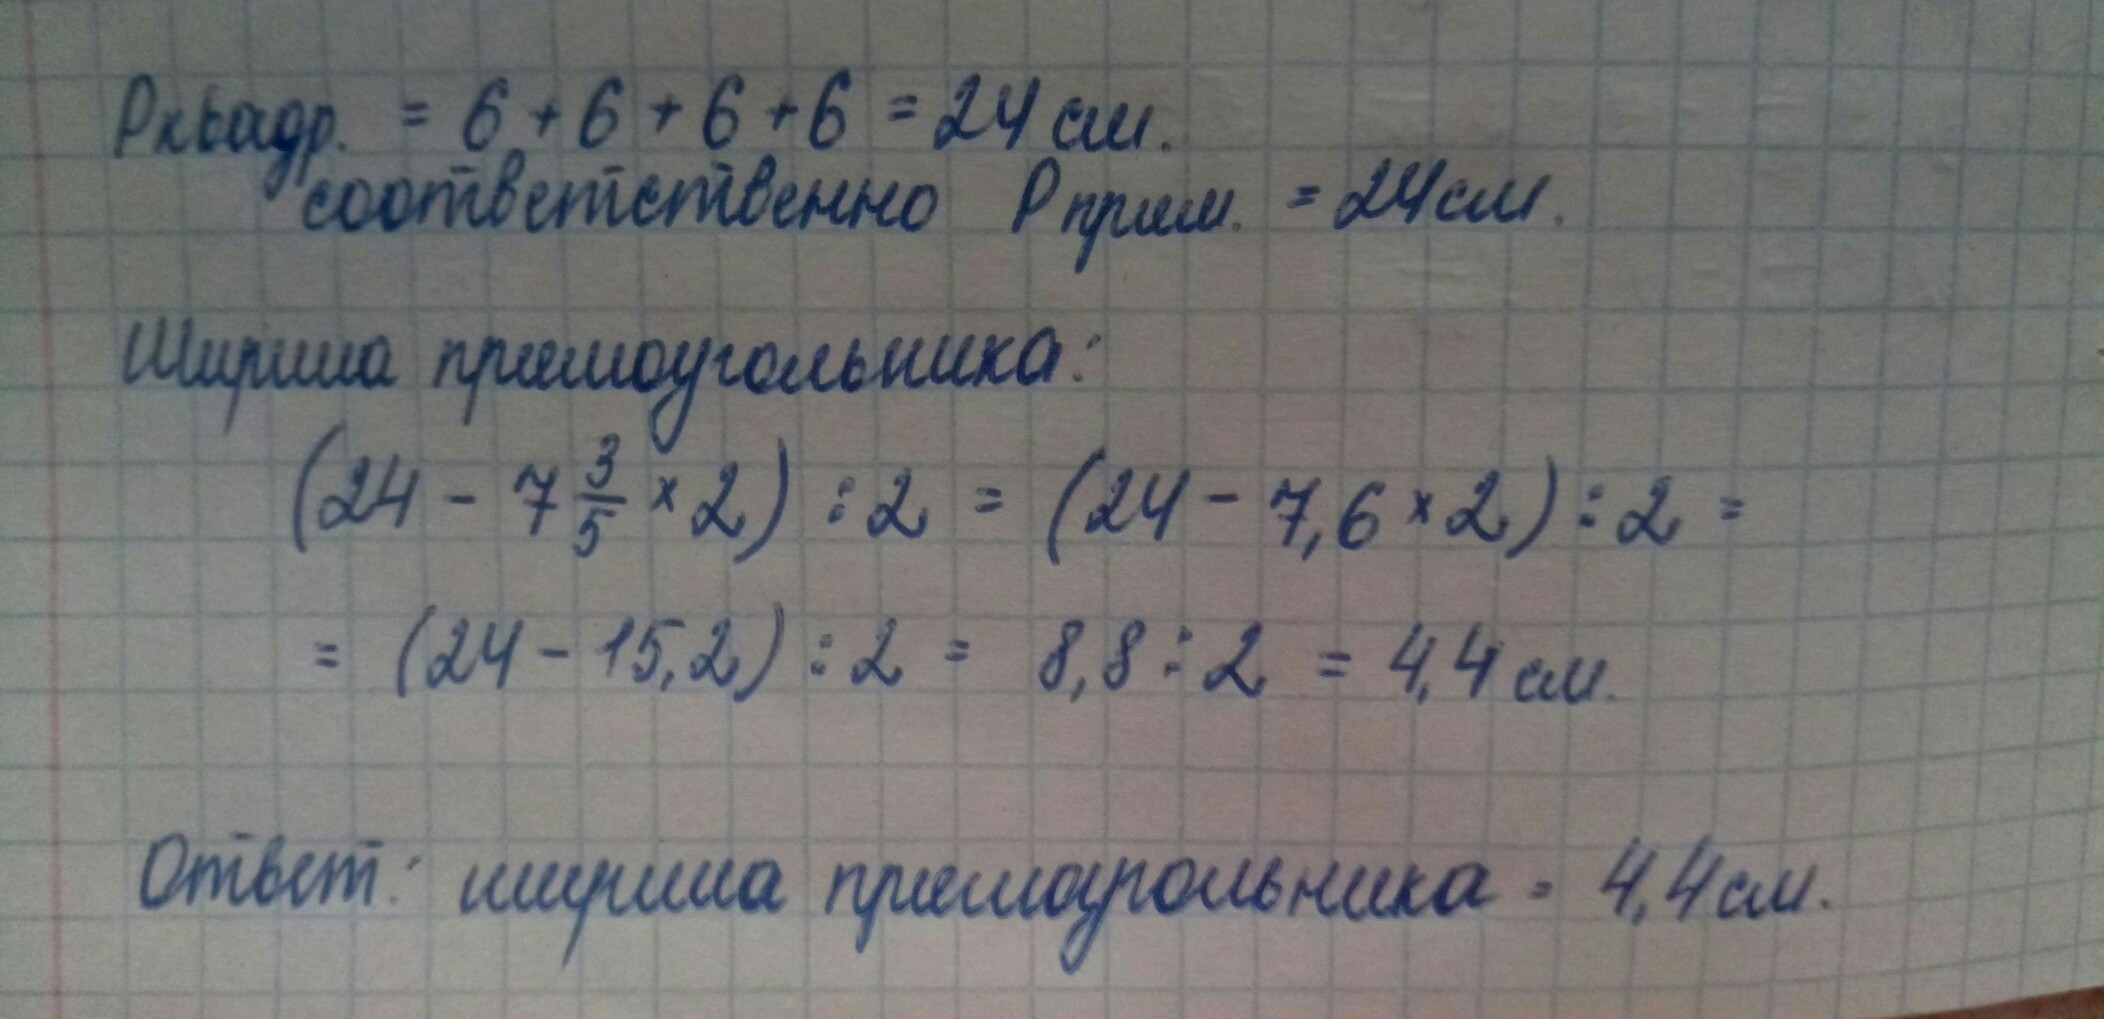 Pквадр. = 6 + 6 + 6 + 6 = 24 см.
соответственно Pпрям. = 24 см.
Ширина прямоугольника:
(24 - 7 3/5 × 2) : 2 = (24 - 7,6 × 2) : 2 =
= (24 - 15,2) : 2 = 8,8 : 2 = 4,4 см.
Ответ: ширина прямоугольника = 4,4 см.